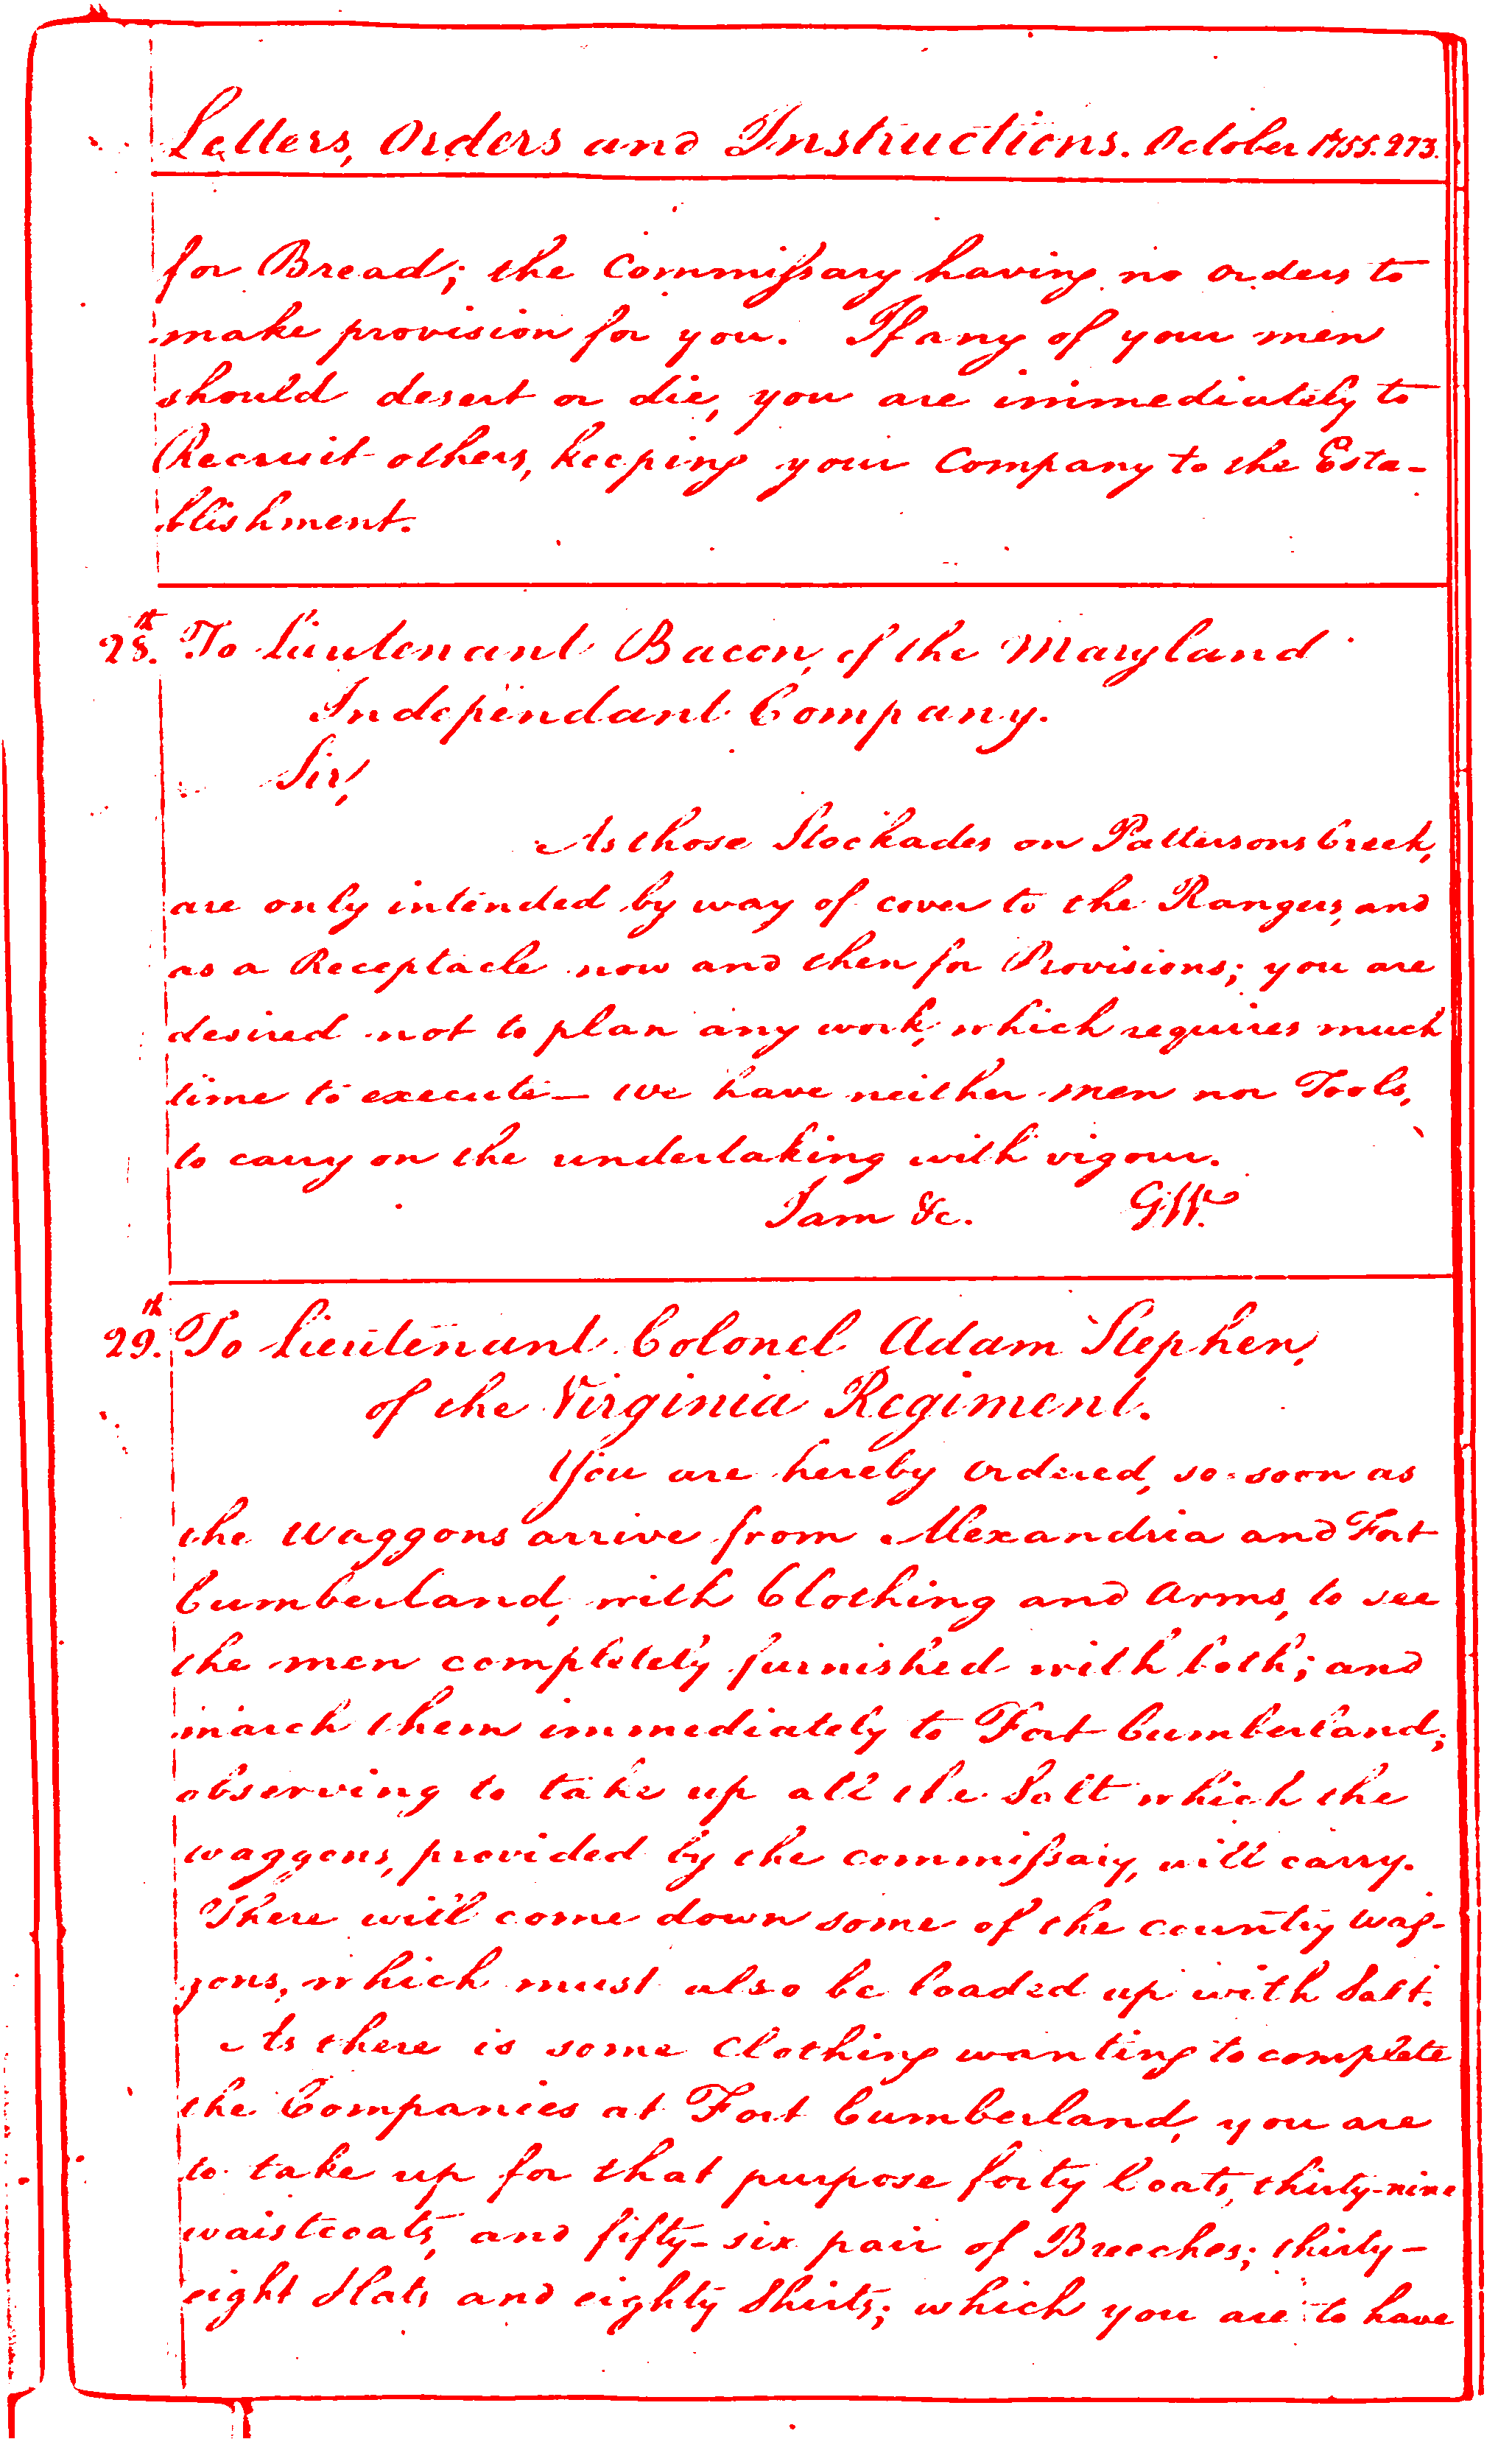 Letters, Orders and Instructions. October 1755. 273.
for Bread; the Commissary having no orders to
make provision for you. If any of your men
should desert or die, you are immediately to
Recruit others, keeping your Company to the Esta-
blishment.
28th. To Lieutenant Bacon, of the Maryland
Independant Company.
Sir,
As those Stockades on Pattersons Creek,
are only intended by way of cover to the Rangers, and
as a Receptacle now and then for Provisions; you are
desired not to plan any work, which requires much
time to execute — We have neither men nor Tools,
to carry on the undertaking with vigour.
I am &c. G:W.
29th. To Lieutenant Colonel Adam Stephen,
of the Virginia Regiment.
You are hereby ordered, so soon as
the Waggons arrive from Alexandria and Fort
Cumberland, with Clothing and Arms, to see
the men completely furnished with both; and
march them immediately to Fort Cumberland;
observing to take up all the Salt which the
waggons, provided by the commissary, will carry.
There will come down some of the country wag-
gons, which must also be loaded up with Salt.
As there is some Clothing wanting to complete
the Companies at Fort Cumberland, you are
to take up for that purpose forty Coats, thirty-nine
waistcoats, and fifty-six pair of Breeches; thirty-
eight Hats and eighty Shirts; which you are to have